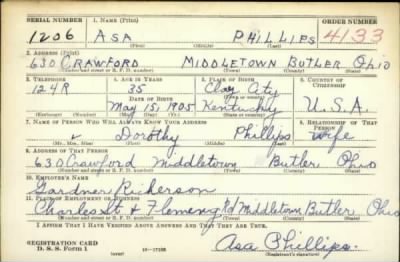 SERIAL NUMBER 1. NAME (Print) ORDER NUMBER
1206 ASA PHILLIPS 4133
(First) (Middle) (Last)
2. ADDRESS (Print)
630 CRAWFORD MIDDLETOWN BUTLER Ohio
(Number and street or R. F. D. number) (Town) (County) (State)
3. TELEPHONE 4. AGE IN YEARS 5. PLACE OF BIRTH 6. COUNTRY OF CITIZENSHIP
124R 35 Clay City
DATE OF BIRTH (Town or county)
May 15, 1905 Kentucky U.S.A.
(Exchange) (Number) (Mo.) (Day) (Yr.) (State or country)
7. NAME OF PERSON WHO WILL ALWAYS KNOW YOUR ADDRESS 8. RELATIONSHIP OF THAT PERSON
Dorothy Phillips Wife
(Mr., Mrs., Miss) (First) (Middle) (Last)
9. ADDRESS OF THAT PERSON
630 Crawford Middletown Butler Ohio
(Number and street or R. F. D. number) (Town) (County) (State)
10. EMPLOYER'S NAME
Gardner Richerson
11. PLACE OF EMPLOYMENT OR BUSINESS
Charles St & Fleming Rd Middletown, Butler Ohio
(Number and street or R. F. D. number) (Town) (County) (State)
I AFFIRM THAT I HAVE VERIFIED ABOVE ANSWERS AND THAT THEY ARE TRUE.
REGISTRATION CARD
D. S. S. Form 1 (over) 16—17105
Asa Phillips.
(Registrant's signature)